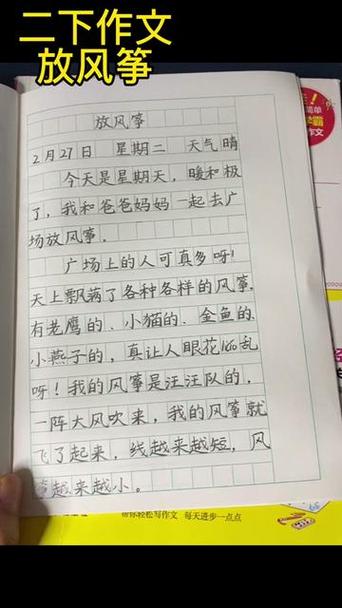 二下作文
放风筝
放风筝
2月27日 星期二 天气晴
今天是星期天，暖和极
了，我和爸爸妈妈一起去广
场放风筝。
广场上的人可真多呀！
天上飘满了各种各样的风筝.
有老鹰的、小猫的、金鱼的.
小燕子的，真让人眼花缭乱
呀！我的风筝是汪汪队的，
一阵大风吹来，我的风筝就
飞了起来，线越来越短，风
筝越来越小。
简单
学霸
作文
带你轻松写作文 每天进步一点点